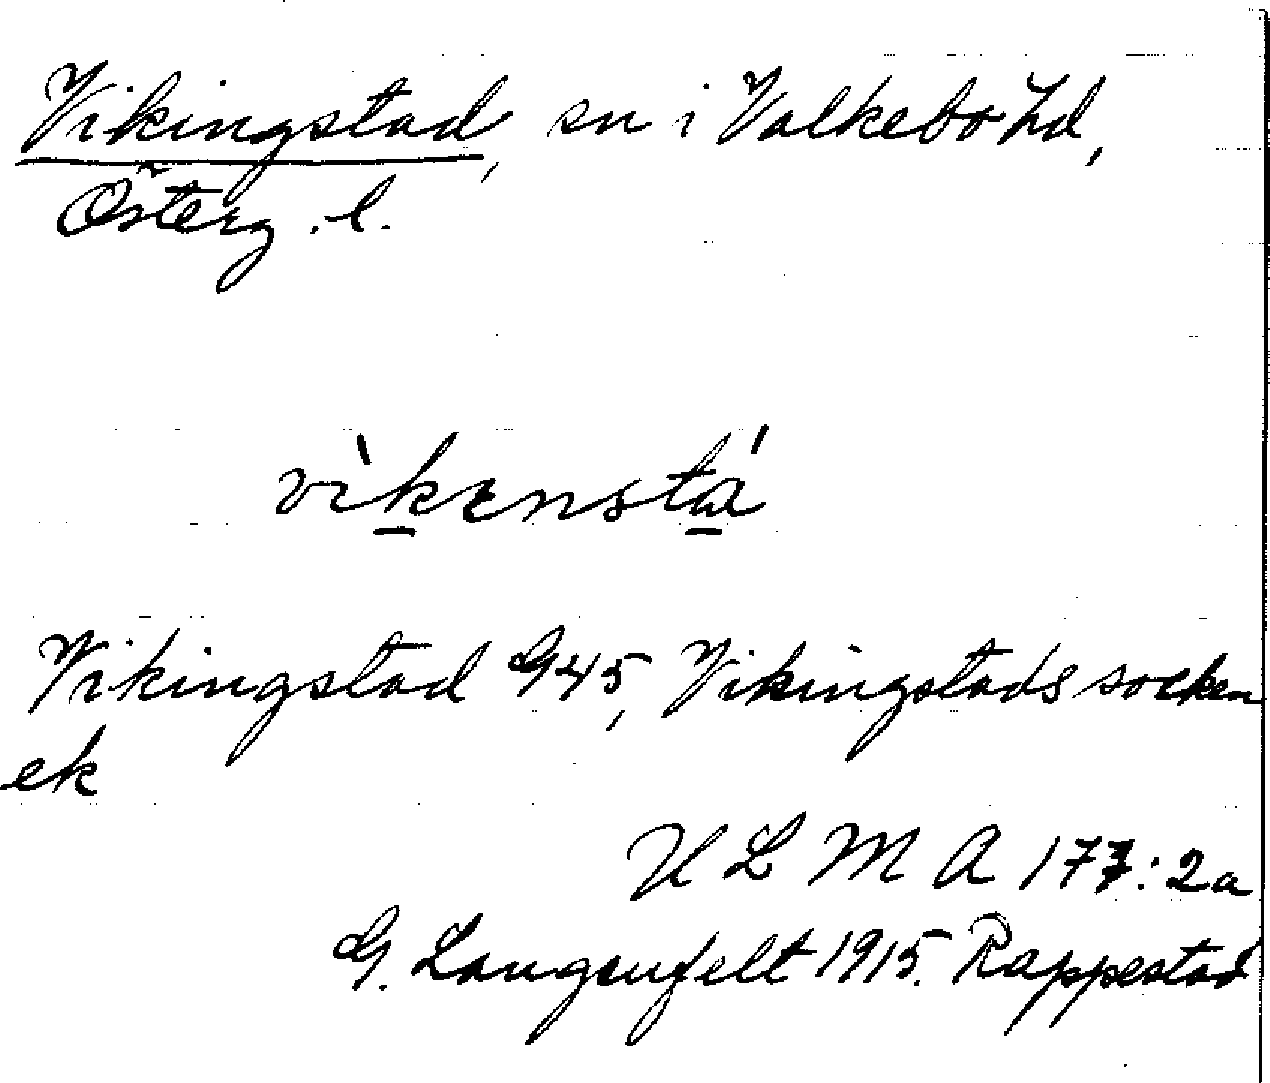 Vikingstad, sn i Valkebo hd,
Österg. l.
vìkenstá
Vikingstad G45, Vikingstads socken
ek
ULMA 177:2a
G. Langenfelt 1915. Rappestad